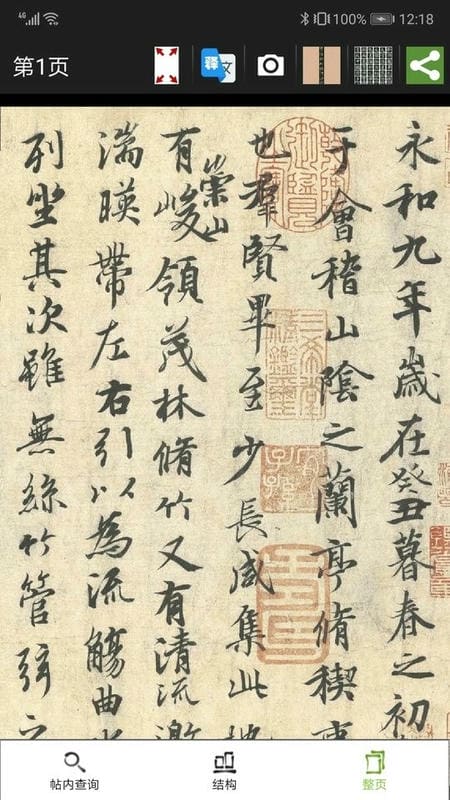 4G 100% 12:18
第1页
释 文
永和九年歲在癸丑暮春之初
于會稽山陰之蘭亭脩禊事
也群賢畢至少長咸集此地
有崇山峻領茂林脩竹又有清流激
湍暎帶左右引以為流觴曲水
列坐其次雖無絲竹管弦之
帖内查询 结构 整页